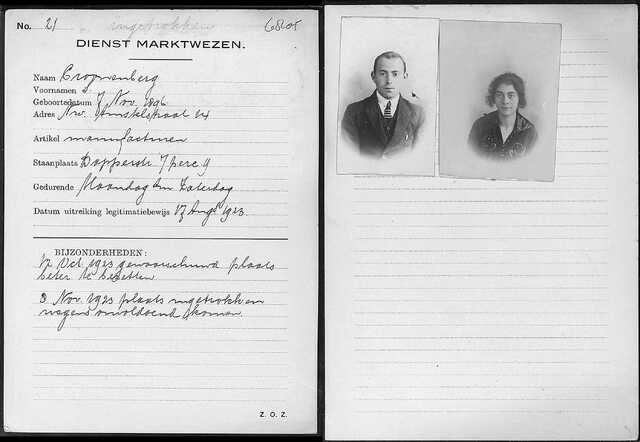 No. 21 ingetrokken
DIENST MARKTWEZEN.
Naam Cropvenberg
Voornamen S
Geboortedatum 7 Nov. 1896
Adres Nw. Amstelstraat 14
Artikel manufacturen
Staanplaats Dapperstr 7 perc 9
Gedurende Maandag t/m Zaterdag
Datum uitreiking legitimatiebewijs 17 Aug 1923
BIJZONDERHEDEN:
12 Oct 1923 gewaarschuwd plaats
beter te bezetten
3 Nov. 1923 plaats ingetrokken
wegens onvoldoend komen
Z. O. Z.